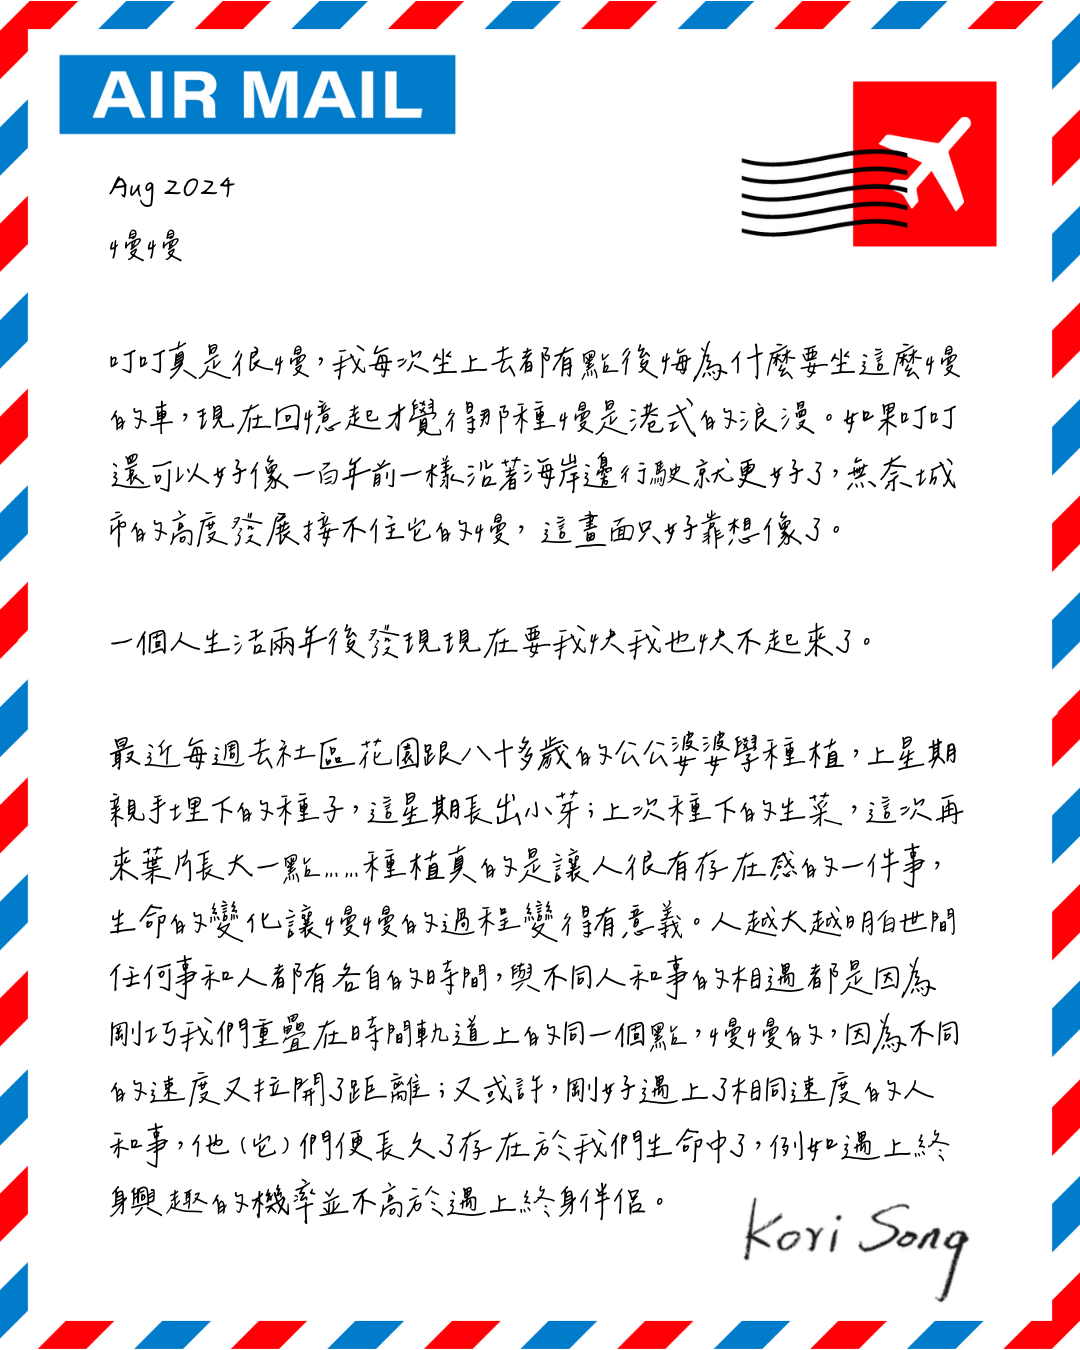 AIR MAIL
Aug 2024
慢慢
叮叮真是很慢，我每次坐上去都有點後悔為什麼要坐這麼慢
的車，現在回憶起才覺得那種慢是港式的浪漫。如果叮叮
還可以好像一百年前一樣沿著海岸邊行駛就更好了，無奈城
市的高度發展接不住它的慢，這畫面只好靠想像了。
一個人生活兩年後發現現在要我快我也快不起來了。
最近每週去社區花園跟八十多歲的公公婆婆學種植，上星期
親手埋下的種子，這星期長出小芽；上次種下的生菜，這次再
來葉片長大一點……種植真的是讓人很有存在感的一件事，
生命的變化讓慢慢的過程變得有意義。人越大越明白世間
任何事和人都有各自的時間，與不同人和事的相遇都是因為
剛巧我們重疊在時間軌道上的同一個點，慢慢的，因為不同
的速度又拉開了距離；又或許，剛好遇上了相同速度的人
和事，他（它）們便長久了存在於我們生命中了，例如遇上終
身興趣的機率並不高於遇上終身伴侶。
Kori Song